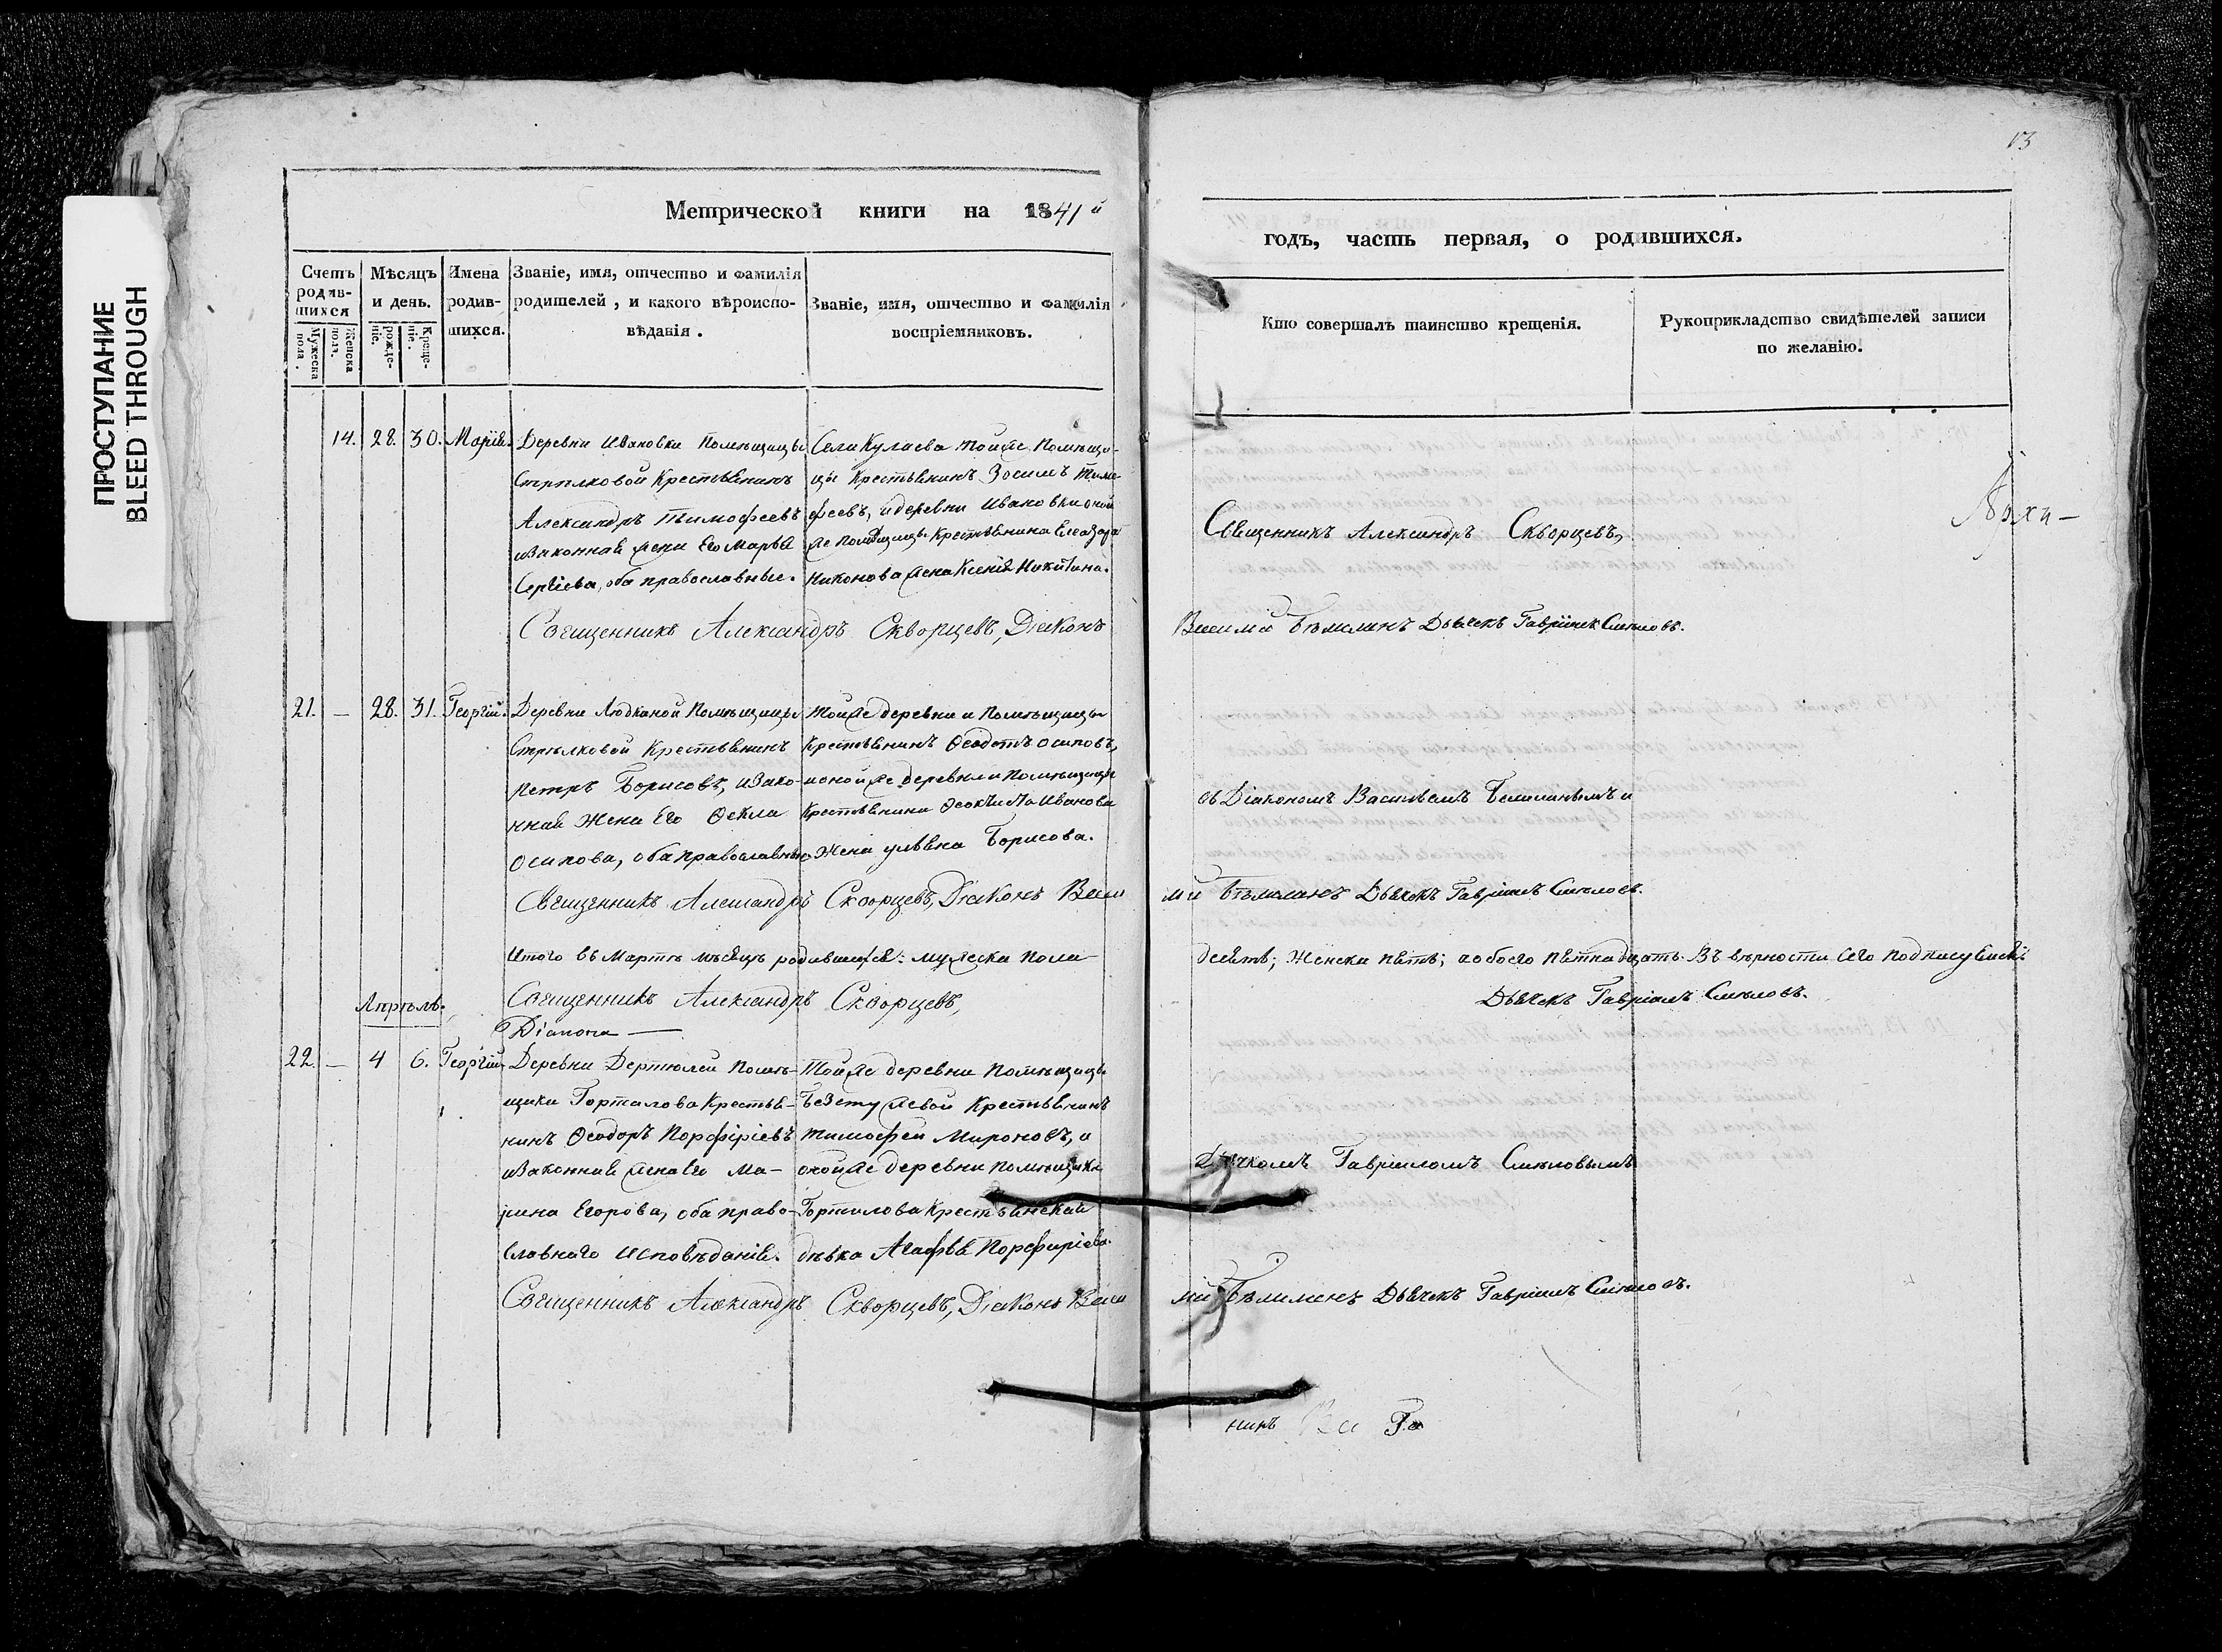 ПРОСТУПАНИЕ
BLEED THROUGH
13
Метрической книги на 1841й
годъ, часть первая, о родившихся.
Счетъ родив-шихся
Мужеска пола.
Женска пола.
Мѣсяцъ и день.
рожде-ніе.
Креще-ніе.
Имена родив-шихся.
Званіе, имя, отчество и фамилія родителей, и какого вѣроиспо-вѣданія.
Званіе, имя, отчество и фамилія воспріемниковъ.
Кто совершалъ таинство крещенія.
Рукоприкладство свидѣтелей записи по желанію.
14. 28. 30. Марія.
Деревни Ивановки Помѣщицы
Стрѣлковой Крестьянинъ
Александръ Тимофеевъ
изаконная жена Его Марья
Сергіева, оба православные.
Села Кулаева тойже Помѣщи-
цы Крестьянинъ Зосимъ Тимо-
феевъ, идеревни Ивановки оной
же помѣщицы Крестьянина Елеазара
Никонова жена Ксенія Никитина.
Священникъ Александръ Скворцевъ,
Священникъ Александръ Скворцевъ, Діаконъ
Василій Бѣлилинъ Дьячекъ Гавріилъ Смѣловъ.
21. — 28. 31. Георгій.
Деревни Людкиной Помѣщицы
Стрѣлковой Крестьянинъ
Петръ Борисовъ, изако-
нная Жена Его Ѳекла
Осипова, оба православные
тойже деревни и Помѣщицы
Крестьянинъ Ѳеодотъ Осиповъ,
ионойже деревни и помѣщицы
Крестьянина Ѳеоктиста Иванова
Жена ульяна Борисова.
съ Діакономъ Васильемъ Белилинымъ и
Священникъ Александръ Скворцевъ, Діаконъ Васи
лій Бѣлилинъ Дьячекъ Гавріилъ Смѣловъ.
Итого въ Мартѣ мѣсяцѣ родившихся: мужеска пола
десять; Женска пять; аобоего пятнадцать. Въ вѣрности сего подписуемся
Священникъ Александръ Скворцевъ,
Дьячекъ Гавріилъ Смѣловъ.
Апрѣль.
Діакона —
22. — 4 6. Георгій
Деревни Дертюлей Помѣ-
щика Горталова Крестья-
нинъ Ѳеодоръ Порфиріевъ
изаконная жена Его Ма-
рина Егорова, оба право-
славнаго исповѣданія.
Тойже деревни помѣщицы
Безстужевой Крестьянинъ
тимофей Мироновъ, и
онойже деревни помѣщика
Горталова Крестьянская
дѣвка Агафья Порфиріева.
Дьячкомъ Гавріиломъ Смѣловымъ
Священникъ Александръ Скворцевъ, Діаконъ Васи
лій Бѣлилинъ Дьячекъ Гавріилъ Смѣловъ.
никъ Ва Га